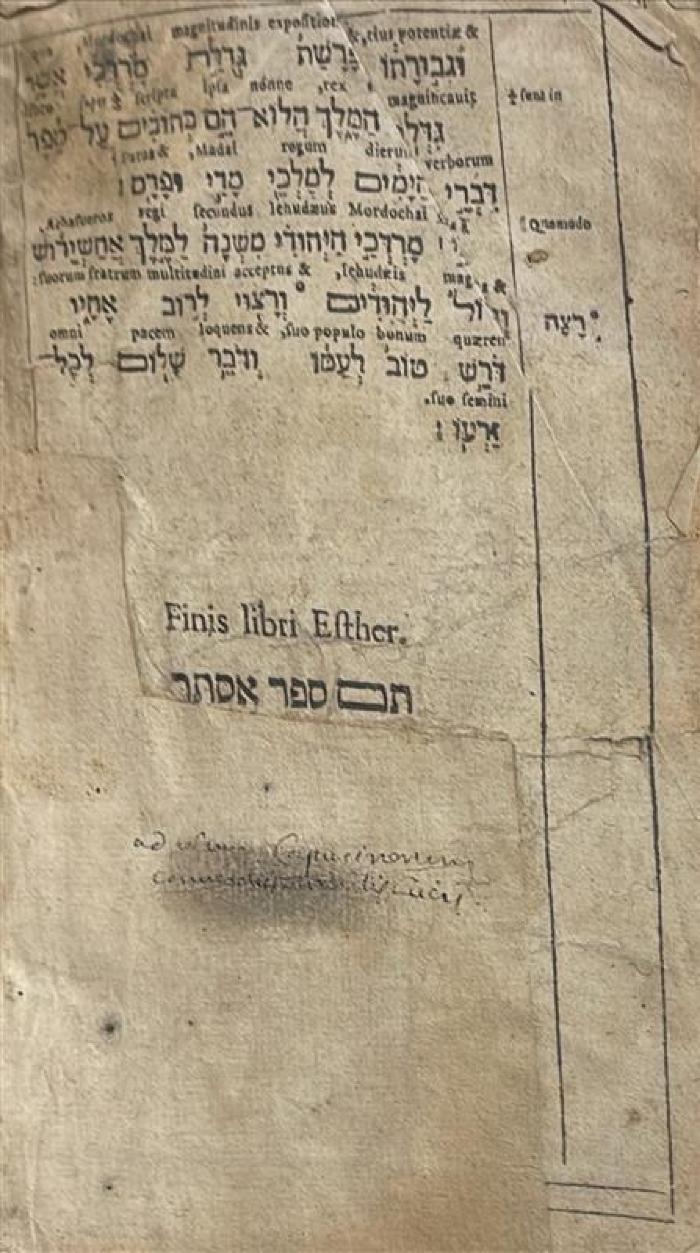 Mordochai magnitudinis expositio & ,eius potentiæ &
וּגְבוּרָתוֹ וּפָרָשַׁת גְּדֻלַּת מָרְדֳּכַי אֲשֶׁר
scripta ipsa nónne ,rex magnificauit
גִּדְּלוֹ הַמֶּלֶךְ הֲלוֹא־הֵם כְּתוּבִים עַל־סֵפֶר
‡ sunt in
& ,Madai regum dierum verborum
דִּבְרֵי הַיָּמִים לְמַלְכֵי מָדַי וּפָרָס׃
regi secundus Iehudæus Mordochai
Quamodo
מָרְדֳּכַי הַיְּהוּדִי מִשְׁנֶה לַמֶּלֶךְ אֲחַשְׁוֵרוֹשׁ
:suorum fratrum multitudini acceptus & ,Iehudæis &
לַיְּהוּדִים °וְרָצוּי לְרֹב אֶחָיו
°רָצָה
omni pacem loquens & ,suo populo bonum quærens
דֹּרֵשׁ טוֹב לְעַמּוֹ וְדֹבֵר שָׁלוֹם לְכָל־
.suo semini
זַרְעוֹ׃
Finis libri Esther.
תם ספר אסתר
ad usum Capucinorum